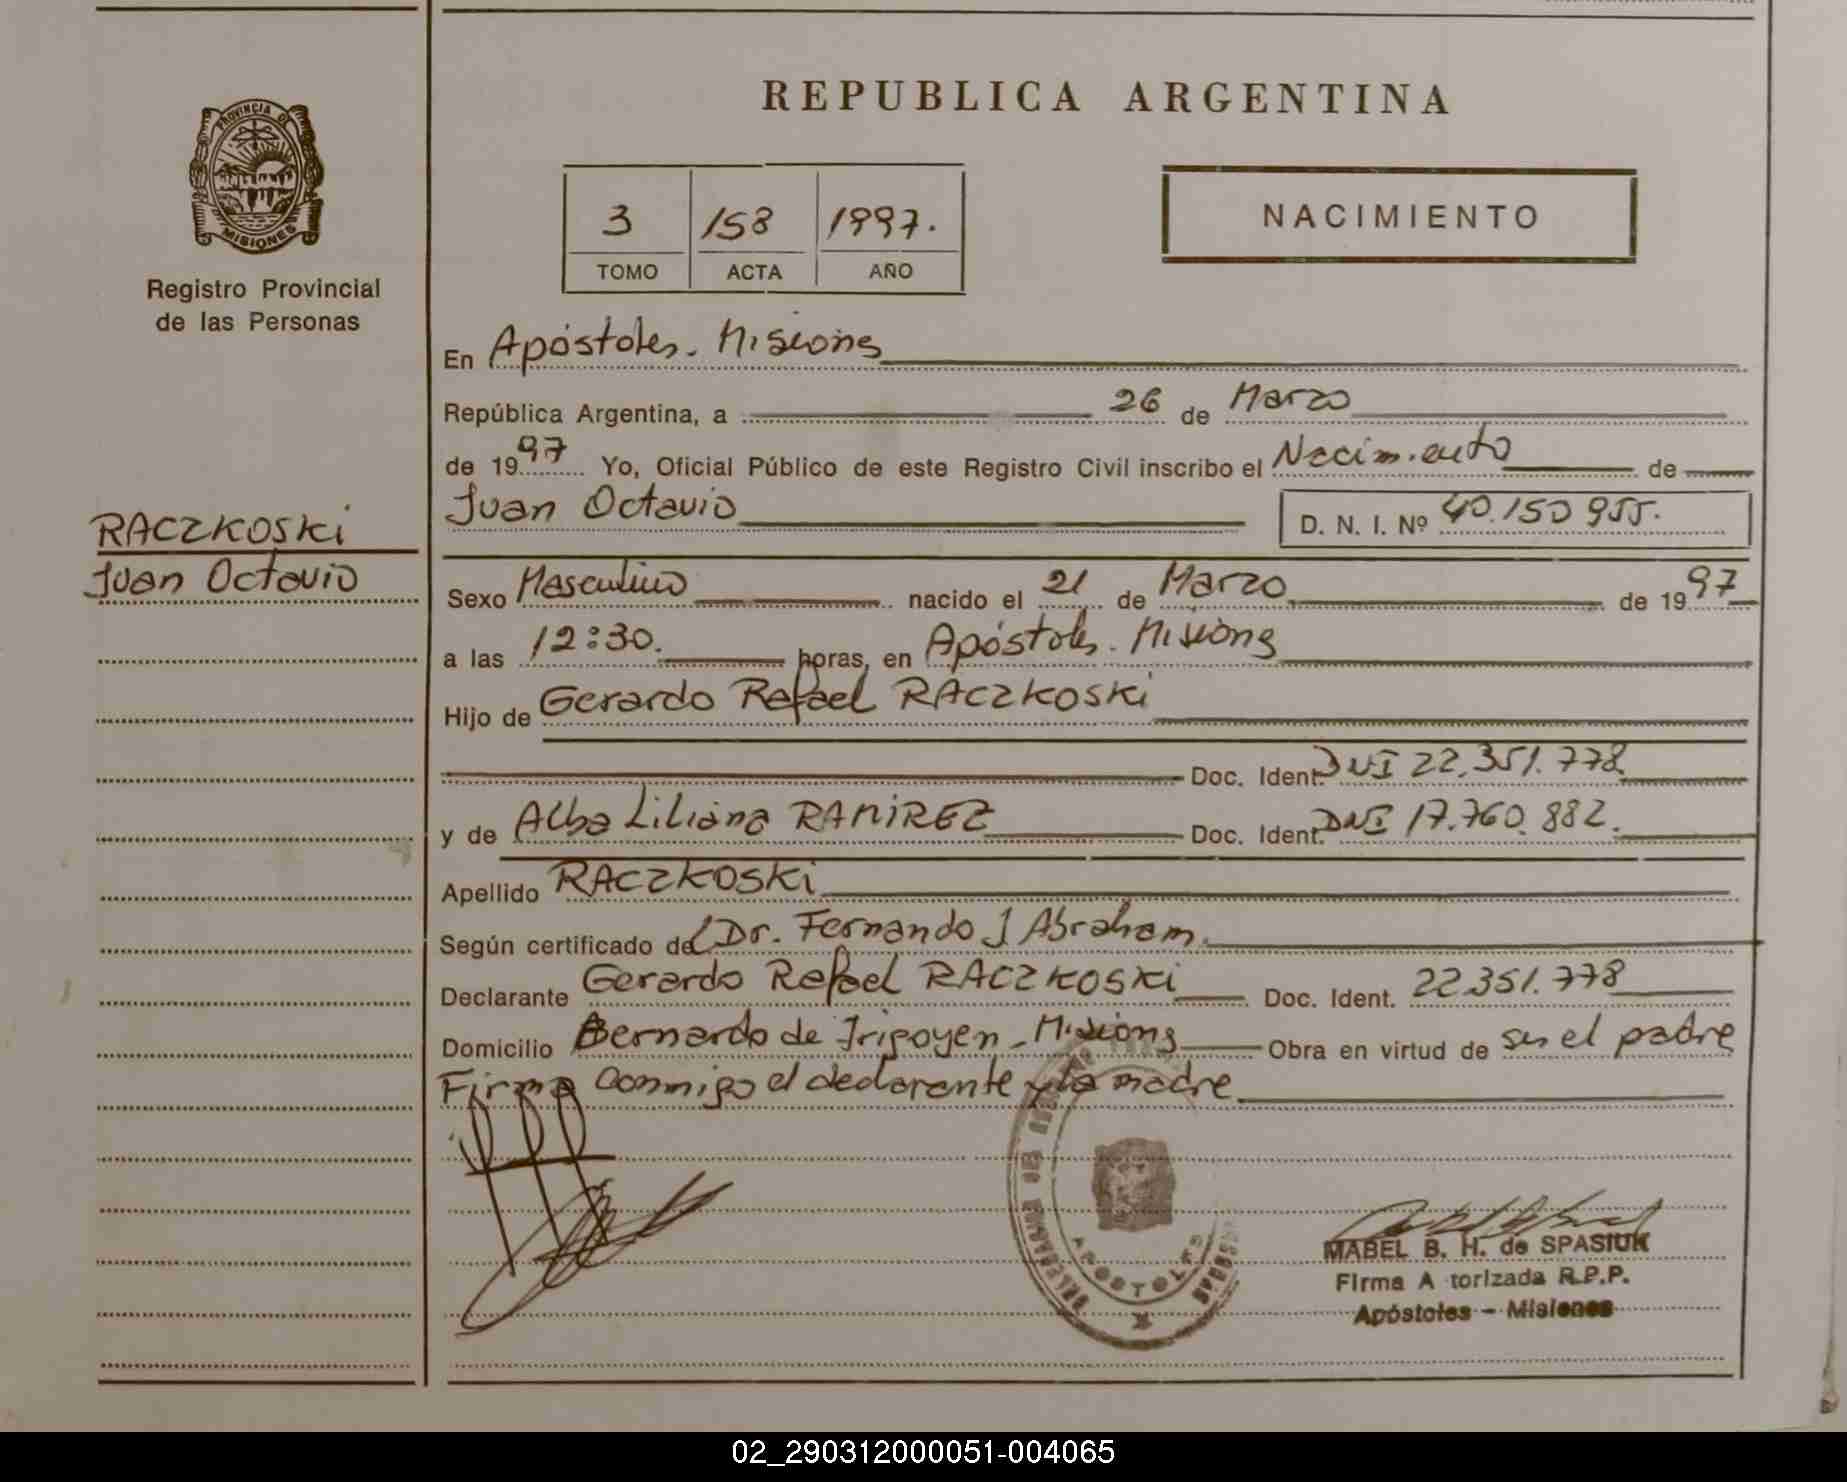 REPUBLICA ARGENTINA
PROVINCIA DE
MISIONES
Registro Provincial
de las Personas
3 158 1997.
TOMO ACTA AÑO
NACIMIENTO
En Apóstoles. Misiones
República Argentina, a 26 de Marzo
de 1997 Yo, Oficial Público de este Registro Civil inscribo el Nacimiento de
Juan Octavio D. N. I. Nº 40.150955.
RACZKOSKi
Juan Octavio
Sexo Masculino nacido el 21 de Marzo de 1997
a las 12:30. horas, en Apóstoles. Misiones
Hijo de Gerardo Rafael RACZKOSKi
Doc. Ident. DNI 22.351.778
y de Alba Liliana RAMiREZ Doc. Ident. DNI 17.760.882.
Apellido RACZKOSKi
Según certificado del Dr. Fernando J Abraham.
Declarante Gerardo Rafael RACZKOSKi Doc. Ident. 22351.778
Domicilio Bernardo de Irigoyen - Misiones Obra en virtud de ser el padre
Firma conmigo el declarante y la madre
APOSTOLES
MABEL B. H. de SPASIUK
Firma A torizada R.P.P.
Apóstoles - Misiones
02_290312000051-004065